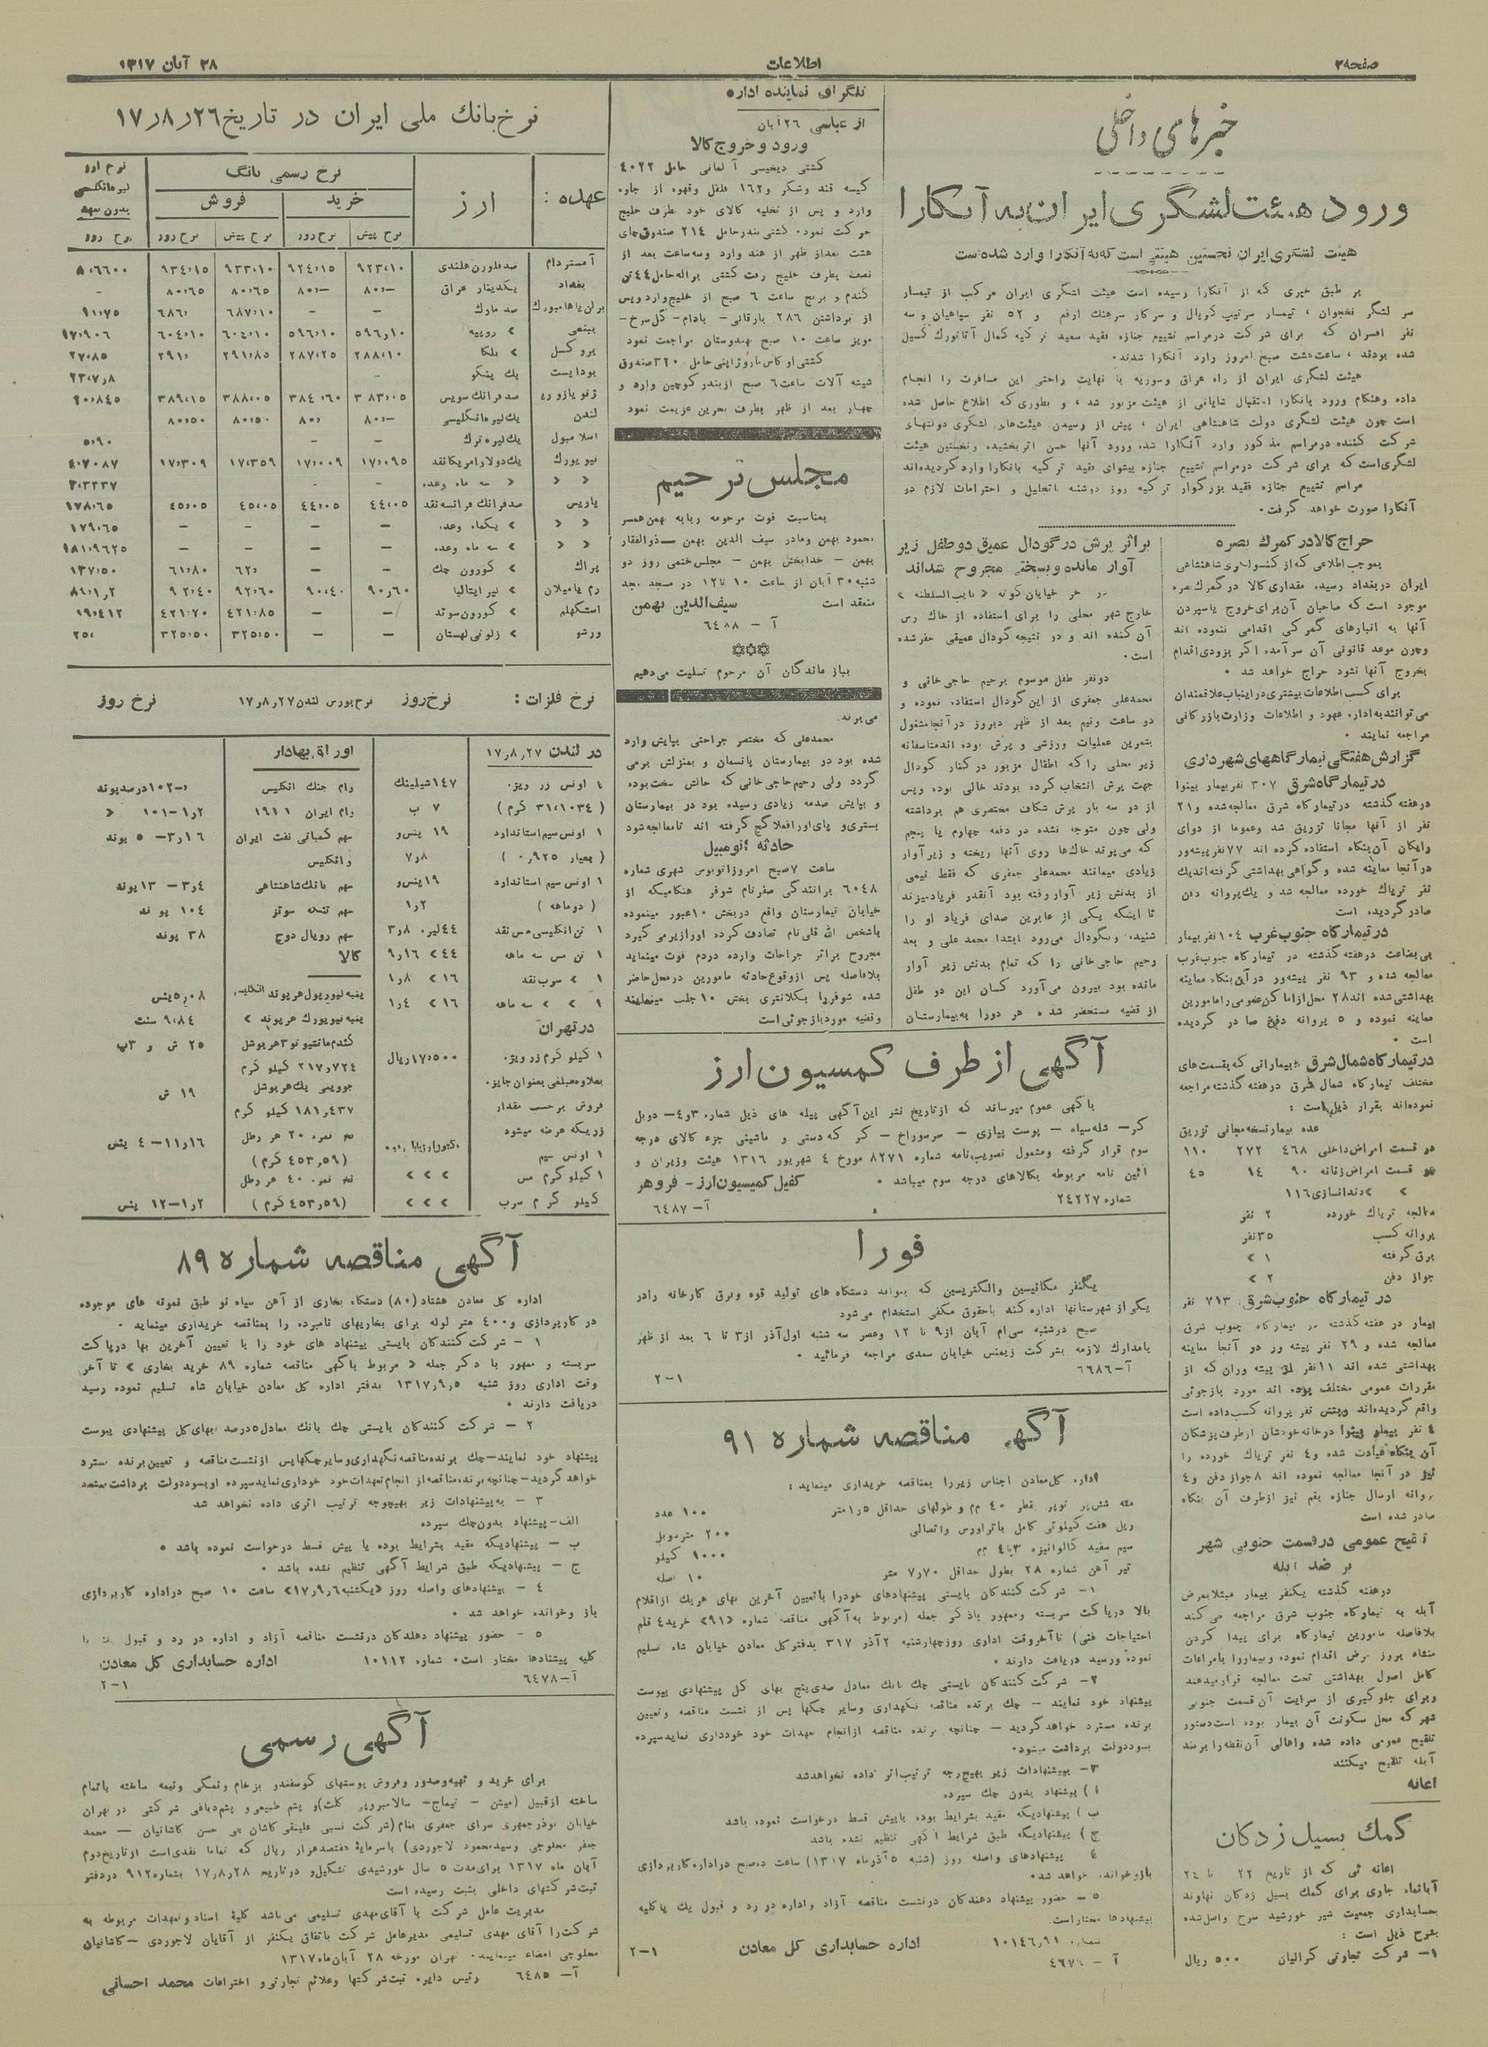 صفحه ۲
اطلاعات
۲۸ آبان ۱۳۱۷
خبرهای داخلی
ورود هیئت لشگری ایران به آنکارا
هیئت لشگری ایران نخستین هیئتی است که به آنکارا وارد شده است
بر طبق خبری که از آنکارا رسیده است هیئت لشگری ایران مرکب از تیمسار
سر لشگر نخجوان ، تیمسار سرتیپ کوپال و سرکار سرهنگ ارفع و ۵۲ نفر سپاهیان و سه
نفر افسران که برای شرکت در مراسم تشییع جنازه فقید سعید ترکیه کمال آتاتورک گسیل
شده بودند ، ساعت هشت صبح امروز وارد آنکارا شدند.
هیئت لشگری ایران از راه عراق وسوریه با نهایت راحتی این مسافرت را انجام
داده وهنگام ورود بآنکارا استقبال شایانی از هیئت مزبور شد ، و بطوری که اطلاع حاصل شده
است چون هیئت لشگری دولت شاهنشاهی ایران ، پیش از رسیدن هیئت‌های لشگری دولتهای
شرکت کننده در مراسم مذکور وارد آنکارا شد، ورود آنها حسن اثر بخشید، ونخستین هیئت
لشگری است که برای شرکت در مراسم تشییع جنازه پیشوای فقید ترکیه بآنکارا وارد گردیده‌اند
مراسم تشییع جنازه فقید بزرگوار ترکیه روز دوشنبه باتجلیل و احترامات لازم در
آنکارا صورت خواهد گرفت.
حراج کالا در گمرک بصره
بموجب اطلاعی که از کنسولگری شاهنشاهی
ایران در بغداد رسیده مقداری کالا در گمرک بصره
موجود است که صاحبان آن برای خروج یاسپردن
آنها به انبارهای گمرکی اقدامی ننموده اند
وچون موعد قانونی آن سرآمده اگر بزودی اقدام
بخروج آنها نشود حراج خواهد شد .
برای کسب اطلاعات بیشتری در اینباب علاقمندان
می‌توانند به اداره عهود و اطلاعات وزارت بازرگانی
مراجعه نمایند .
گزارش هفتگی تیمارگاههای شهرداری
در تیمارگاه شرق ۳۰۷ نفر بیمار بینوا
در هفته گذشته در تیمارگاه شرق معالجه شده و ۲۱
نفر از آنها مجانا تزریق شد وعموما از دوای
رایگان آن بنگاه استفاده کرده اند ۷۷ نفر پیشه‌ور
در آنجا معاینه شده و گواهی بهداشتی گرفته اند یک
نفر تریاک خورده معالجه شد و یک پروانه دفن
صادر گردیده است
در تیمارگاه جنوب غرب ۱۰۴ نفر بیمار
بی بضاعت در هفته گذشته در تیمارگاه جنوب غرب
معالجه شده و ۹۳ نفر پیشه‌ور در آن بنگاه معاینه
بهداشتی شده اند ۲۸ محل از اماکن عمومی را مامورین
معاینه نموده و ۵ پروانه دفن صادر گردیده
است .
در تیمارگاه شمال شرق : بیمارانی که بقسمت‌های
مختلف تیمارگاه شمال شرق در هفته گذشته مراجعه
نموده‌اند بقرار ذیل است :
عده بیمار نسخه مجانی تزریق
در قسمت امراض داخلی ۴۶۸ ۲۷۲ ۱۱۰
در قسمت امراض زنانه ۹۰ ۱۴ ۴۵
» » دندانسازی ۱۱۶
معالجه تریاک خورده ۲ نفر
پروانه کسب ۳۵ نفر
برق گرفته ۱ »
جواز دفن ۲ »
در تیمارگاه جنوب شرق، ۷۱۳ نفر
بیمار در هفته گذشته در تیمارگاه جنوب شرق
معالجه شده و ۲۹ نفر پیشه ور در آنجا معاینه
بهداشتی شده اند ۱۱ نفر از پیشه وران که از
مقررات عمومی مختلف بوده اند مورد بازجوئی
واقع گردیده‌اند وشش نفر پروانه کسب داده است
۴ نفر بیمار بینوا در خانه خودشان از طرف پزشکان
آن بنگاه عیادت شده و ۴ نفر تریاک خورده را
نیز در آنجا معالجه نموده اند ۸ جواز دفن و ۴
پروانه ارسال جنازه بقم نیز از طرف آن بنگاه
صادر شده است
تلقیح عمومی در قسمت جنوبی شهر
بر ضد آبله
در هفته گذشته یکنفر بیمار مبتلا بمرض
آبله به تیمارگاه جنوب شرق مراجعه می‌کند
بلافاصله مامورین تیمارگاه برای پیدا کردن
منشاء بروز مرض اقدام نموده وبیمار را بامراعات
کامل اصول بهداشتی تحت معالجه قرار میدهند
وبرای جلوگیری از سرایت آن قسمت جنوبی
شهر که محل سکونت آن بیمار بوده است دستور
تلقیح عمومی داده شده واهالی آن نقطه را بر ضد
آبله تلقیح میکنند
اعانه
کمک بسیل زدگان
اعانه ئی که از تاریخ ۲۲ تا ۲۴
آبانماه جاری برای کمک بسیل زدگان نهاوند
بحسابداری جمعیت شیر خورشید سرخ واصل شده
بشرح ذیل است :
۱- شرکت تجارتی گرالیان ۵۰۰ ریال
براثر پرش در گودال عمیق دو طفل زیر
آوار مانده و بسختی مجروح شده‌اند
در خیابان کوته « نایب السلطنه »
خارج شهر محلی را برای استفاده از خاک رس
آن کنده اند و در نتیجه گودال عمیقی حفر شده
است .
دو نفر طفل موسوم برحیم حاجی خانی و
محمدعلی جعفری از این گودال استفاده نموده و
دو ساعت ونیم بعد از ظهر دیروز در آنجا مشغول
بتمرین عملیات ورزشی و پرش بوده اند متاسفانه
زیر محلی را که اطفال مزبور در کنار گودال
جهت پرش انتخاب کرده بودند خالی بوده وپس
از دو سه بار پرش شکاف مختصری هم برداشته
ولی چون متوجه نشده در دفعه چهارم یا پنجم
که می‌پرند خاک‌ها روی آنها ریخته و زیر آوار
زیادی میمانند محمدعلی جعفری که فقط نیمی
از بدنش زیر آوار رفته بود آنقدر فریاد میزند
تا اینکه یکی از عابرین صدای فریاد او را
شنیده وبگودال می‌رود ابتدا محمد علی و بعد
رحیم حاجی خانی را که تمام بدنش زیر آوار
مانده بود بیرون می‌آورد کسان این دو طفل
از قضیه مستحضر شده هر دو را به بیمارستان
تلگراف نماینده اداره
از عباسی ۲۶ آبان
ورود و خروج کالا
کشتی دیخیس آلمانی حامل ۴۰۲۲
کیسه قند وشکر و ۱۶۲ فلفل وقهوه از جاوه
وارد و پس از تخلیه کالای خود بطرف خلیج
حرکت نمود، کشتی بندر حامل ۲۱۴ صندوق چای
هشت بعداز ظهر از هند وارد وسه ساعت بعد از
نصف بطرف خلیج رفت کشتی براله حامل ۴۴ تن
گندم و برنج ساعت ۶ صبح از خلیج وارد وپس
از برداشتن ۲۸۶ بارقالی - بادام - گل سرخ -
مویز ساعت ۱۰ صبح بهندوستان مراجعت نمود
کشتی اوکاس مارو ژاپنی حامل ۳۲۰ صندوق
شیشه آلات ساعت ۶ صبح از بندر کوچین وارد و
چهار بعد از ظهر بطرف بحرین عزیمت نمود
مجلس ترحیم
بمناسبت فوت مرحومه ربابه بهمن همسر
محمود بهمن ومادر سیف الدین بهمن — ذوالفقار
بهمن - خدابخش بهمن - مجلس ختمی روز دو
شنبه ۳۰ آبان از ساعت ۱۰ تا ۱۲ در مسجد مجد
منعقد است سیف‌الدین بهمن
آ - ۶۴۸۸
***
بباز ماندگان آن مرحوم تسلیت می‌دهیم
می‌برند.
محمدعلی که مختصر جراحتی بپایش وارد
شده بود در بیمارستان پانسمان و بمنزلش برمی
گردد ولی رحیم حاجی خانی که حالش سخت بوده
و بپایش صدمه زیادی رسیده بود در بیمارستان
بستری و پای او را فعلا گچ گرفته اند تا معالجه شود
حادثه اتومبیل
ساعت ۷ صبح امروز اتوبوس شهری شماره
۶۰۴۸ برانندگی صفرنام شوفر هنگامیکه از
خیابان تیمارستان واقع در بخش ۱۰ عبور مینموده
باشخص الله قلی نام تصادف کرده او را زیر می گیرد
مجروح براثر جراحات وارده در دم فوت مینماید
بلافاصله پس از وقوع حادثه مامورین در محل حاضر
شده شوفر را بکلانتری بخش ۱۰ جلب مینمایند
وقضیه مورد بازجوئی است
آگهی از طرف کمسیون ارز
باگهی عموم میرساند که از تاریخ نشر این آگهی پیله های ذیل شماره ۳ و ۴ - دوبل
کر - شله سیاه - پوست پیازی - سرسوراخ - کر که دستی و ماشینی جزء کالای درجه
سوم قرار گرفته ومشمول تصویب‌نامه شماره ۸۲۷۱ مورخ ۴ شهریور ۱۳۱۶ هیئت وزیران و
آئین نامه مربوطه بکالاهای درجه سوم میباشد .
کفیل کمیسیون ارز - فروهر
شماره ۲۴۲۲۷
آ- ۶۴۸۷
فورا
یکنفر مکانیسین والکتریسین که بتواند دستگاه های تولید قوه وبرق کارخانه را در
یکی از شهرستانها اداره کند باحقوق مکفی استخدام می‌شود
صبح دوشنبه سی‌ام آبان از ۹ تا ۱۲ وعصر سه شنبه اول آذر از ۳ تا ۶ بعد از ظهر
بامدارک لازمه بشرکت زیمنس خیابان سعدی مراجعه فرمائید .
آ-۶۶۸۶
۲-۱
آگهی مناقصه شماره ۹۱
اداره کل معادن اجناس زیر را بمناقصه خریداری مینماید :
مته شش‌پر توپر بقطر ۴۰ مم و طولهای حداقل ۱٫۵ متر ۱۰۰ عدد
ریل هفت کیلوئی کامل باتراورس واتصالی ۲۰۰ متر دوبل
سیم سفید گالوانیزه ۳ یا ۴ مم ۱۰۰۰ کیلو
تیر آهن شماره ۲۸ بطول حداقل ۷٫۷۰ متر ۱۰ اصله
۱- شرکت کنندگان بایستی پیشنهادهای خود را باتعیین آخرین بهای هریک از اقلام
بالا درپاکت سربسته وممهور باذکر جمله (مربوط به آگهی مناقصه شماره «۹۱» خرید ۴ قلم
احتیاجات فنی) تا آخر وقت اداری روز چهارشنبه ۲ آذر ۳۱۷ بدفتر کل معادن خیابان شاه تسلیم
نموده ورسید دریافت دارند .
۲- شرکت کنندگان بایستی چک بانک معادل صدی پنج بهای کل پیشنهادی پیوست
پیشنهاد خود نمایند - چک برنده مناقصه نگهداری وسایر چکها پس از نشست مناقصه وتعیین
برنده مسترد خواهد گردید - چنانچه برنده مناقصه از انجام تعهدات خود خودداری نماید سپرده
بسود دولت برداشت میشود.
۳- بپیشنهادات زیر بهیچ‌وجه ترتیب اثر داده نخواهد شد
ا ) پیشنهاد بدون چک سپرده
ب ) پیشنهادیکه مقید بشرایط بوده یا پیش قسط درخواست نموده باشد
ج ) پیشنهادیکه طبق شرایط آگهی تنظیم نشده باشد
۴ پیشنهادهای واصله روز (شنبه ۵ آذر ماه ۱۳۱۷) ساعت ده صبح در اداره کارپردازی
باز وخوانده خواهد شد.
۵ - حضور پیشنهاد دهندگان در نشست مناقصه آزاد واداره در رد و قبول یک یا کلیه
پیشنهادها مختار است.
شماره ۱۰۱۴۶٫۹۱ اداره حسابداری کل معادن ۲-۱
آ -
نرخ بانک ملی ایران در تاریخ ۲۶ر۸ر۱۷
عهده : ارز نرخ رسمی بانک نرخ ارز لیره انگلیسی بدون تعهد
خرید فروش
نرخ پیش نرخ روز نرخ پیش نرخ روز نرخ روز
آمستردام صد فلورن هلندی ۹۲۳٫۱۰ ۹۲۴٫۱۵ ۹۳۳٫۱۰ ۹۳۴٫۱۵
بغداد یکدینار عراق ۸۰٫- ۸۰٫- ۸۰٫۶۵ ۸۰٫۶۵ -
برلن یا هامبورک صد مارک - - ۶۸۷٫۱۰ ۶۸۶٫
بمبئی » روپیه ۵۹۶٫۱۰ ۵۹۶٫۱۰ ۶۰۴٫۱۰ ۶۰۴٫۱۰
بروکسل » بلگا ۲۸۸٫۱۰ ۲۸۷٫۲۵ ۲۹۱٫۸۵ ۲۹۱٫
بوداپست یک پنگو ۲۳۷٫۸
ژنو یا زوریخ صد فرانک سویس ۳۸۳٫۰۵ ۳۸۴٫۶۰ ۳۸۸٫۰۵ ۳۸۹٫۱۵
لندن یک لیره انگلیسی ۸۰٫- ۸۰٫ ۸۰٫۵۰ ۸۰٫۵۰
اسلامبول یک لیره ترک - - ۵٫۹۰
نیویورک یک دولار امریکا نقد ۱۷٫۰۹۵ ۱۷٫۰۰۹ ۱۷٫۳۵۹ ۱۷٫۳۰۹
» » » سه ماه وعده
پاریس صد فرانک فرانسه نقد ۴۴٫۰۵ ۴۴٫۰۵ ۴۵٫۰۵ ۴۵٫۰۵ ۱۷۸٫۶۵
» » » یکماه وعده - - - - ۱۷۹٫۶۵
» » » سه ماه وعده - - - -
پراک » کورون چک - - ۶۲٫ ۶۱٫۸۰
رم یا میلان » لیر ایتالیا ۹۰٫۶۰ ۹۰٫۴۰ ۹۲٫۶۰ ۹۲٫۴۰
استکهلم » کورون سوئد - - ۴۲۱٫۸۵ ۴۲۱٫۲۰
ورشو » زلوتی لهستان - - ۳۲۵٫۵۰ ۳۲۵٫۵۰ ۲۵٫
نرخ فلزات : نرخ روز
نرخ بورس لندن ۲۷ر۸ر۱۷ نرخ روز
در لندن ۲۷ر۸ر۱۷
۱ اونس زر ویژه ۱۴۷ شیلینک
( ۳۱٫۱۰۳۴ گرم ) ۷ پ
۱ اونس سیم استاندارد ۱۹ پنس و
( بعیار ۰٫۹۲۵ ) ۷٫۸
۱ اونس سیم استاندارد ۱۹ پنس و
( دوماهه ) ۱٫۲
۱ تن انگلیسی مس نقد ۴۴ لیره ۳٫۸
۱ تن مس سه ماهه ۴۴ » ۹٫۱۶
۱ » سرب نقد ۱۶ » ۱٫۸
۱ » » سه ماهه ۱۶ » ۱٫۴
در تهران
۱ کیلو گرم زر ویژه ۱۷٫۵۰۰ ریال
بعلاوه مبلغی بعنوان جایزه
فروش برحسب مقدار
زریکه عرضه میشود
۱ اونس سیم
۱ کیلوگرم مس » » »
کیلو گرم سرب » » »
اوراق بهادار
وام جنک انگلیس ۱۰۲ درصد پوند
وام ایران ۱۹۱۱ ۱۰۱-۱٫۲ »
سهم کمپانی نفت ایران و انگلیس ۵ - ۳٫۱۶ پوند
سهم بانک شاهنشاهی ۱۳ - ۳٫۴ پوند
سهم ترعه سوئز ۱۰۴ پوند
سهم رویال دوچ ۳۸ پوند
کالا
پنبه لیورپول هر پوند انگلیسی ۵٫۰۸ پنس
پنبه نیویورک هر پوند » ۹٫۸۴ سنت
گندم مانیتوبا نو ۳ هر بوشل ۲۵ ش و ۳ پ
۲۱۷٫۷۲۴ کیلو گرم
جو ویسی یک هر بوشل ۱۹ ش
۱۸۱٫۴۳۷ کیلو گرم
نخ نمره ۲۰ هر رطل ۴ - ۱۱٫۱۶ پنس
(۴۵۳٫۵۹ گرم )
نخ نمره ۴۰ هر رطل
(۴۵۳٫۵۹ گرم ) ۱۲-۱٫۲ پنس
آگهی مناقصه شماره ۸۹
اداره کل معادن هشتاد (۸۰) دستگاه بخاری از آهن سیاه نو طبق نمونه های موجوده
در کارپردازی و ۴۰۰ متر لوله برای بخاریهای نامبرده را بمناقصه خریداری مینماید .
۱ - شرکت کنندگان بایستی پیشنهاد های خود را با تعیین آخرین بها درپاکت
سربسته و ممهور با ذکر جمله « مربوط باگهی مناقصه شماره ۸۹ خرید بخاری » تا آخر
وقت اداری روز شنبه ۱۳۱۷٫۹٫۵ بدفتر اداره کل معادن خیابان شاه تسلیم نموده رسید
دریافت دارند .
۲ - شرکت کنندگان بایستی چک بانک معادل ۵ درصد بهای کل پیشنهادی پیوست
پیشنهاد خود نمایند - چک برنده مناقصه نگهداری وسایر چکها پس از نشست مناقصه و تعیین برنده مسترد
خواهد گردید - چنانچه برنده مناقصه از انجام تعهدات خود خودداری نماید سپرده او بسود دولت برداشت میشود
۳ - به پیشنهادات زیر بهیچوجه ترتیب اثری داده نخواهد شد
الف - پیشنهاد بدون چک سپرده
ب - پیشنهادیکه مقید بشرایط بوده یا پیش قسط درخواست نموده باشد .
ج - پیشنهادیکه طبق شرایط آگهی تنظیم نشده باشد .
۴ - پیشنهادهای واصله روز «یکشنبه ۶ر۹ر۱۷» ساعت ۱۰ صبح در اداره کارپردازی
باز وخوانده خواهد شد .
۵ - حضور پیشنهاد دهندگان در نشست مناقصه آزاد و اداره در رد و قبول یک یا
کلیه پیشنهادها مختار است. شماره ۱۰۱۱۲ اداره حسابداری کل معادن
آ - ۶۴۷۸ ۲-۱
آگهی رسمی
برای خرید و تهیه وصدور وفروش پوستهای گوسفند و بز خام ونمکی ونیمه ساخته یا تمام
ساخته از قبیل (میشن - تیماج - سالامبرو پر گلت) و پشم طبیعی و پشم دباغی شرکتی در تهران
خیابان بوذرجمهری سرای جعفری بنام (شرکت نسبی علینقی کاشانی حسن کاشانیان - محمد
جعفر معلوجی وسید محمود لاجوردی) باسرمایه هفتصد هزار ریال که تماما نقدی است از تاریخ دوم
آبان ماه ۱۳۱۷ برای مدت ۵ سال خورشیدی تشکیل و در تاریخ ۲۸ر۸ر۱۷ بشماره ۹۱۲ در دفتر
ثبت شرکتهای داخلی بثبت رسیده است
مدیریت عامل شرکت با آقای مهدی تسلیمی می‌باشد کلیهٔ اسناد و تعهدات مربوطه به
شرکت را آقای مهدی تسلیمی مدیرعامل شرکت باتفاق یکنفر از آقایان لاجوردی - کاشانیان
معلوجی امضاء مینمایند. تهران مورخه ۲۸ آبان ماه ۱۳۱۷
آ- ۶۴۸۵ رئیس دایره ثبت شرکتها وعلائم تجارتی و اختراعات محمد احسانی